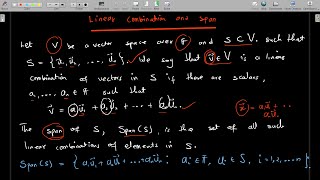 Linear Combination and Span
Let V be a vector space over F and S ⊂ V. such that
S = { u⃗₁, u⃗₂, ..... u⃗ₙ }. We say that v⃗ ∈ V is a linear
combination of vectors in S if there are scalars,
a₁, .... aₙ ∈ F such that
v⃗ = a₁u⃗₁ + a₂u⃗₂ + .... + aₙu⃗ₙ.
The span of S, Span(S), is the set of all such
linear combinations of elements in S.
Span(S) = { a₁u⃗₁ + a₂u⃗₂ + ... + aₙu⃗ₙ : aᵢ ∈ F, uᵢ ∈ S, i = 1, 2, ..., n }